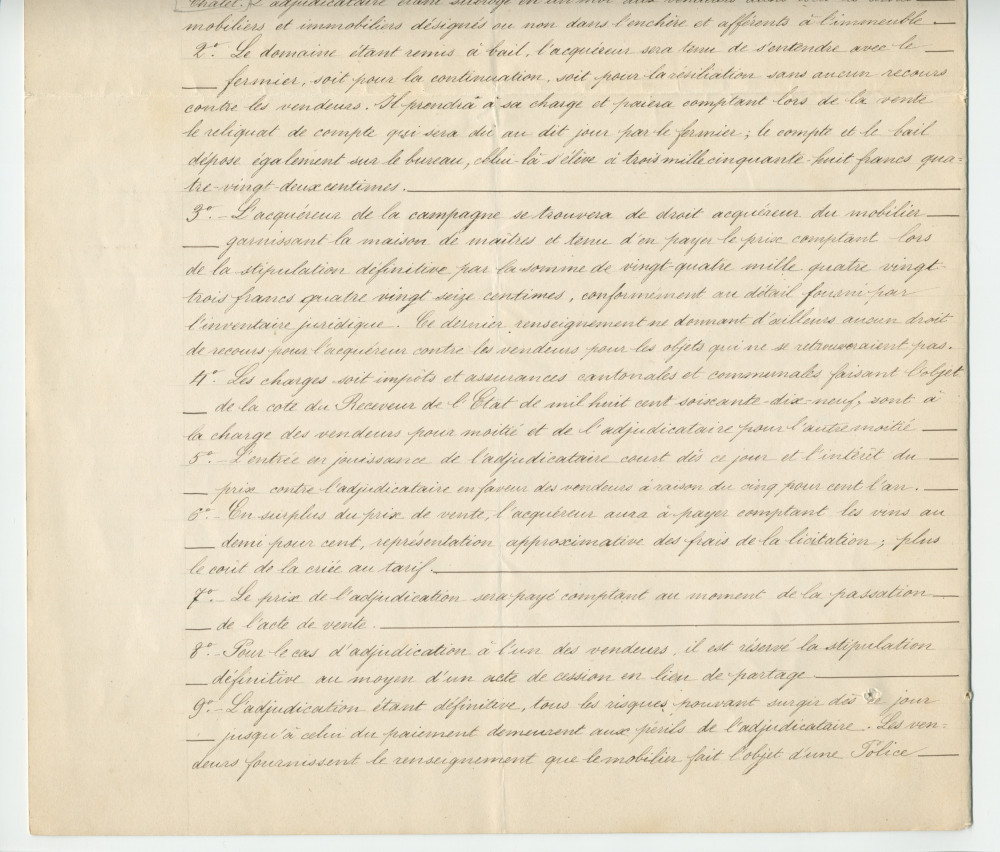 Châlet. L'adjudicataire étant subrogé en un mot aux vendeurs dans
mobiliers et immobiliers désignés ou non dans l'enchère et afférents à l'immeuble.
2°. Le domaine étant remis à bail, l'acquéreur sera tenu de s'entendre avec le
fermier, soit pour la continuation, soit pour la résiliation sans aucun recours
contre les vendeurs. Il prendra à sa charge et paiera comptant lors de la vente
le reliquat de compte qui sera dû au dit jour par le fermier; le compte et le bail
déposé également sur le bureau, celui-là s'élève à trois mille cinquante-huit francs qua=
tre-vingt-deux centimes.
3°. L'acquéreur de la campagne se trouvera de droit acquéreur du mobilier
garnissant la maison de maîtres et tenu d'en payer le prix comptant lors
de la stipulation définitive par la somme de vingt-quatre mille quatre vingt-
trois francs quatre vingt seize centimes, conformément au détail fourni par
l'inventaire juridique. Ce dernier renseignement ne donnant d'ailleurs aucun droit
de recours pour l'acquéreur contre les vendeurs pour les objets qui ne se retrouveraient pas.
4°. Les charges soit impôts et assurances cantonales et communales faisant l'objet
de la cote du Receveur de l'Etat de mil huit cent soixante-dix=neuf, sont à
la charge des vendeurs pour moitié et de l'adjudicataire pour l'autre moitié
5°. L'entrée en jouissance de l'adjudicataire court dès ce jour et l'intérêt du
prix contre l'adjudicataire en faveur des vendeurs à raison du cinq pour cent l'an.
6°. En surplus du prix de vente, l'acquéreur aura à payer comptant les vins au
demi pour cent, représentation approximative des frais de la licitation; plus
le coût de la criée au tarif.
7°. Le prix de l'adjudication sera payé comptant au moment de la passation
de l'acte de vente.
8°. Pour le cas d'adjudication à l'un des vendeurs, il est réservé la stipulation
définitive au moyen d'un acte de cession en lieu de partage.
9°. L'adjudication étant définitive, tous les risques pouvant surgir dès ce jour
jusqu'à celui du paiement demeurent aux périls de l'adjudicataire. Les ven=
deurs fournissent le renseignement que le mobilier fait l'objet d'une Police